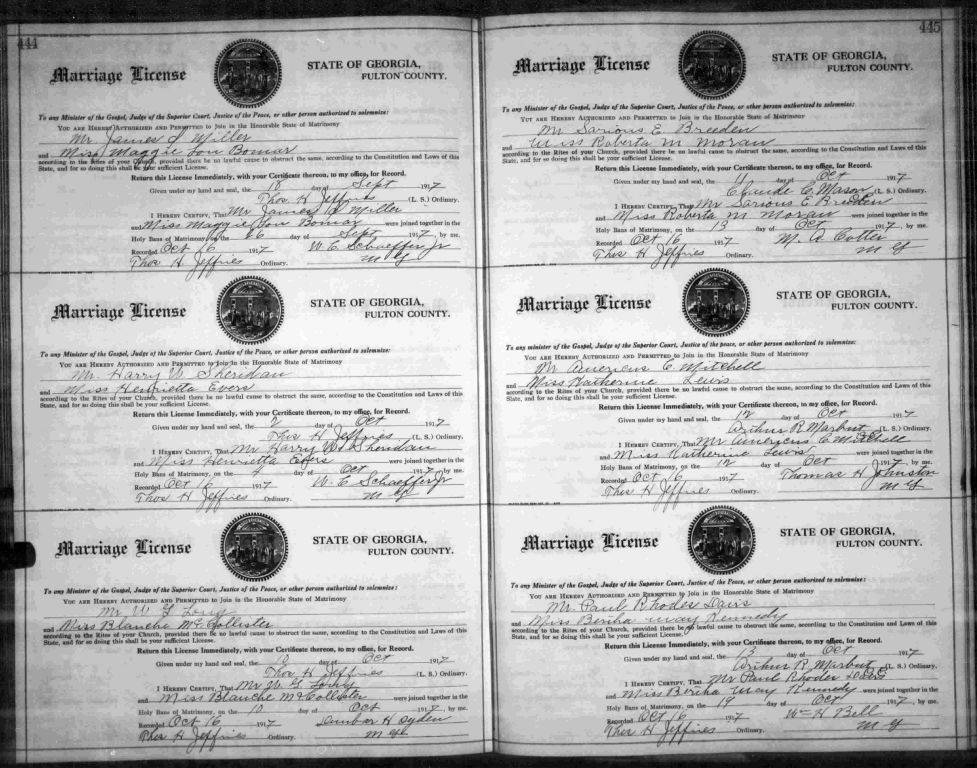 444
Marriage License
STATE OF GEORGIA,
FULTON COUNTY.
To any Minister of the Gospel, Judge of the Superior Court, Justice of the Peace, or other person authorized to solemnize:
YOU ARE HEREBY AUTHORIZED AND PERMITTED to Join in the Honorable State of Matrimony
Mr James J Miller
and Miss Maggie Lou Bomar
according to the Rites of your Church, provided there be no lawful cause to obstruct the same, according to the Constitution and Laws of this
State, and for so doing this shall be your sufficient License.
Return this License Immediately, with your Certificate thereon, to my office, for Record.
Given under my hand and seal, the 18 day of Sept 1917
Thos H Jeffries (L. S.) Ordinary.
I HEREBY CERTIFY, That Mr James J Miller
and Miss Maggie Lou Bomar were joined together in the
Holy Bans of Matrimony, on the day of Sept 1917, by me.
Recorded Oct 16 1917 W. E. Schaeffer Jr
Thos H Jeffries Ordinary. M G
Marriage License
STATE OF GEORGIA,
FULTON COUNTY.
To any Minister of the Gospel, Judge of the Superior Court, Justice of the Peace, or other person authorized to solemnize:
YOU ARE HEREBY AUTHORIZED AND PERMITTED to Join in the Honorable State of Matrimony
Mr. Harry W Sheridan
and Miss Henrietta Evers
according to the Rites of your Church, provided there be no lawful cause to obstruct the same, according to the Constitution and Laws of this
State, and for so doing this shall be your sufficient License.
Return this License Immediately, with your Certificate thereon, to my office, for Record.
Given under my hand and seal, the 2 day of Oct 1917
Thos H Jeffries (L. S.) Ordinary.
I HEREBY CERTIFY, That Mr Harry W Sheridan
and Miss Henrietta Evers were joined together in the
Holy Bans of Matrimony, on the day of Oct 1917, by me.
Recorded Oct 16 1917 W. E. Schaeffer Jr
Thos H Jeffries Ordinary. M G
Marriage License
STATE OF GEORGIA,
FULTON COUNTY.
To any Minister of the Gospel, Judge of the Superior Court, Justice of the Peace, or other person authorized to solemnize:
YOU ARE HEREBY AUTHORIZED AND PERMITTED to Join in the Honorable State of Matrimony
Mr W G Long
and Miss Blanche McCollister
according to the Rites of your Church, provided there be no lawful cause to obstruct the same, according to the Constitution and Laws of this
State, and for so doing this shall be your sufficient License.
Return this License Immediately, with your Certificate thereon, to my office, for Record.
Given under my hand and seal, the 10 day of Oct 1917
Thos H Jeffries (L. S.) Ordinary.
I HEREBY CERTIFY, That Mr W G Long
and Miss Blanche McCollister were joined together in the
Holy Bans of Matrimony, on the 10 day of Oct 1917, by me.
Recorded Oct 16 1917 H Ogden
Thos H Jeffries Ordinary.
445
Marriage License
STATE OF GEORGIA,
FULTON COUNTY.
To any Minister of the Gospel, Judge of the Superior Court, Justice of the Peace, or other person authorized to solemnize:
YOU ARE HEREBY AUTHORIZED AND PERMITTED to Join in the Honorable State of Matrimony
Mr Sarious E. Breeden
and Miss Roberta M Moran
according to the Rites of your Church, provided there be no lawful cause to obstruct the same, according to the Constitution and Laws of this
State, and for so doing this shall be your sufficient License.
Return this License Immediately, with your Certificate thereon, to my office, for Record.
Given under my hand and seal, the 11 day of Oct 1917
Claude C. Mason (L. S.) Ordinary.
I HEREBY CERTIFY, That Mr Sarious E Breeden
and Miss Roberta M Moran were joined together in the
Holy Bans of Matrimony, on the 13 day of Oct 1917, by me.
Recorded Oct 16 1917 M. A Cotter
Thos H Jeffries Ordinary. M G
Marriage License
STATE OF GEORGIA,
FULTON COUNTY.
To any minister of the Gospel, Judge of the Superior Court, Justice of the peace, or other person authorized to solemnize:
YOU ARE HEREBY AUTHORIZED AND PERMITTED to Join in the Honorable State of Matrimony
Mr Americus C. Mitchell
and Miss Katherine Lewis
according to the Rites of your Church, provided there be no lawful cause to obstruct the same, according to the Constitution and Laws of this
State, and for so doing this shall be your sufficient License.
Return this License Immediately, with your Certificate thereon, to my office, for Record.
Given under my hand and seal, the 12 day of Oct 1917
Arthur R. Marbut (L. S.) Ordinary.
I HEREBY CERTIFY, That Mr Americus C Mitchell
and Miss Katherine Lewis were joined together in the
Holy Bans of Matrimony, on the 12 day of Oct 1917, by me.
Recorded Oct 16 1917 Thomas H Johnston
Thos H Jeffries Ordinary. M G
Marriage License
STATE OF GEORGIA,
FULTON COUNTY.
To any Minister of the Gospel, Judge of the Superior Court, Justice of the Peace, or other person authorized to solemnize:
YOU ARE HEREBY AUTHORIZED AND PERMITTED to Join in the Honorable State of Matrimony
Mr. Paul Rhodes Davis
and Miss Bertha May Kennedy
according to the Rites of your Church, provided there be no lawful cause to obstruct the same, according to the Constitution and Laws of this
State, and for so doing this shall be your sufficient License.
Return this License Immediately, with your Certificate thereon, to my office, for Record.
Given under my hand and seal, the 13 day of Oct 1917
Arthur R. Marbut (L. S.) Ordinary.
I HEREBY CERTIFY, That Mr Paul Rhodes Davis
and Miss Bertha May Kennedy were joined together in the
Holy Bans of Matrimony, on the day of Oct 1917, by me.
Recorded Oct 16 1917 Wm H Bell
Thos H Jeffries Ordinary. M G